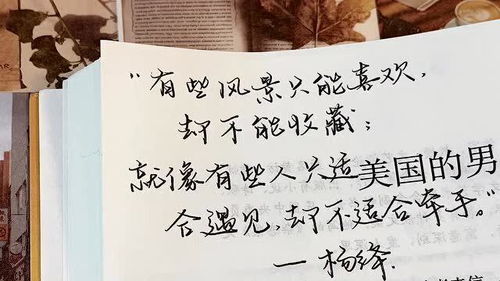 “有些风景只能喜欢，
却不能收藏；
就像有些人只适美国的男
合遇见，却不适合牵手。”
—杨绛.